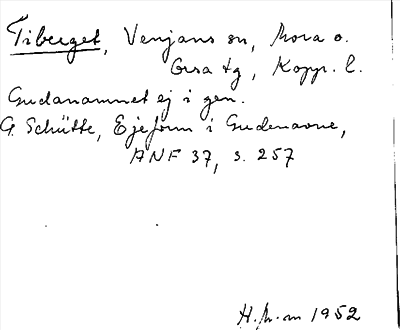 Tiberget, Venjans sn, Mora o.
Orsa tg, Kopp. l.
Gudanamnet ej i gen.
G. Schütte, Ejeform i Gudenavne,
ANF 37, s. 257
H. 1952